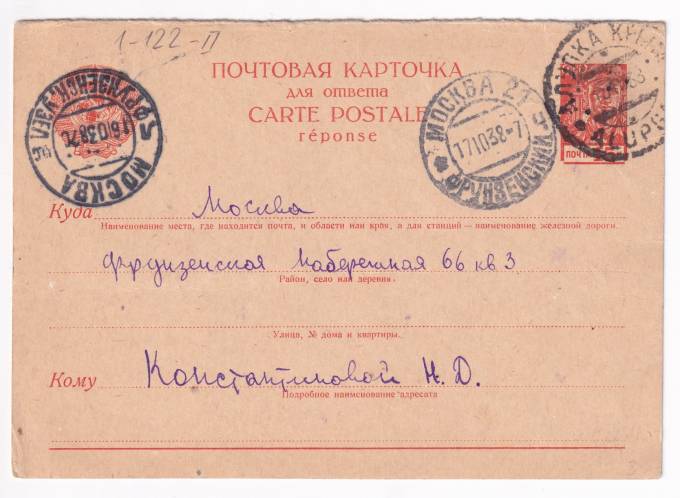 1-122-П
ПОЧТОВАЯ КАРТОЧКА
для ответа
CARTE POSTALE
réponse
МОСКВА 21
17 10 38-7
ФРУНЗЕНСКИЙ
МОСКВА
ALUPKA
Куда Москва
Наименование места, где находится почта, и области или края, а для станций — наименование железной дороги.
Фрунзенская Набережная 66 кв 3
Район, село или деревня.
Улица, № дома и квартиры.
Кому Константиновой Н. Д.
Подробное наименование адресата